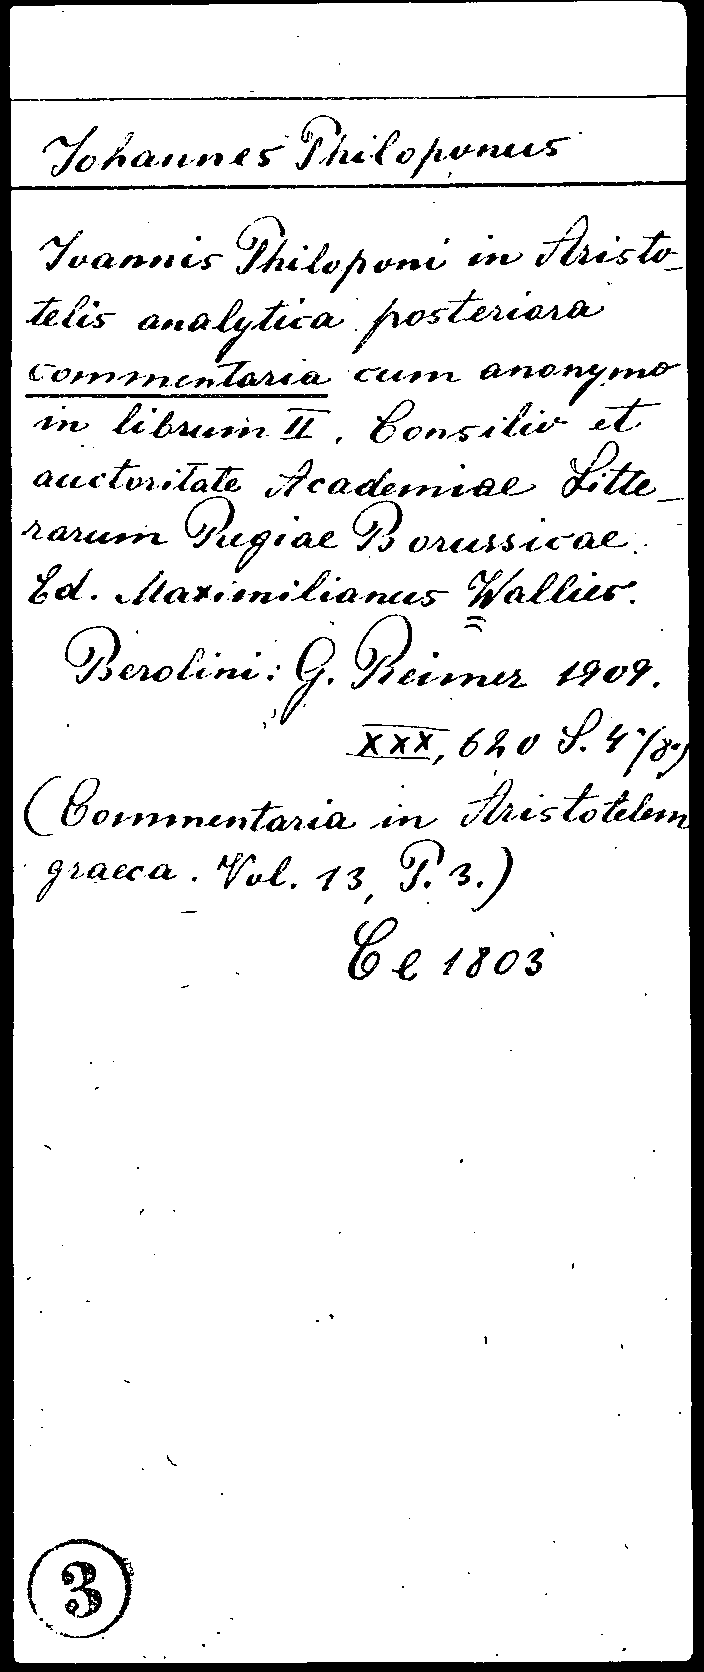 Johannes Philoponus
Ioannis Philoponi in Aristo-
telis analytica posteriora
commentaria cum anonymo
in librum II. Consilio et
auctoritate Academiae Litte-
rarum Regiae Borussicae.
Ed. Maximilianus Wallies.
Berolini: G. Reimer 1909.
XXX, 620 S. 4°(8°)
(Commentaria in Aristotelem
graeca. Vol. 13, P. 3.)
Ce 1803
3